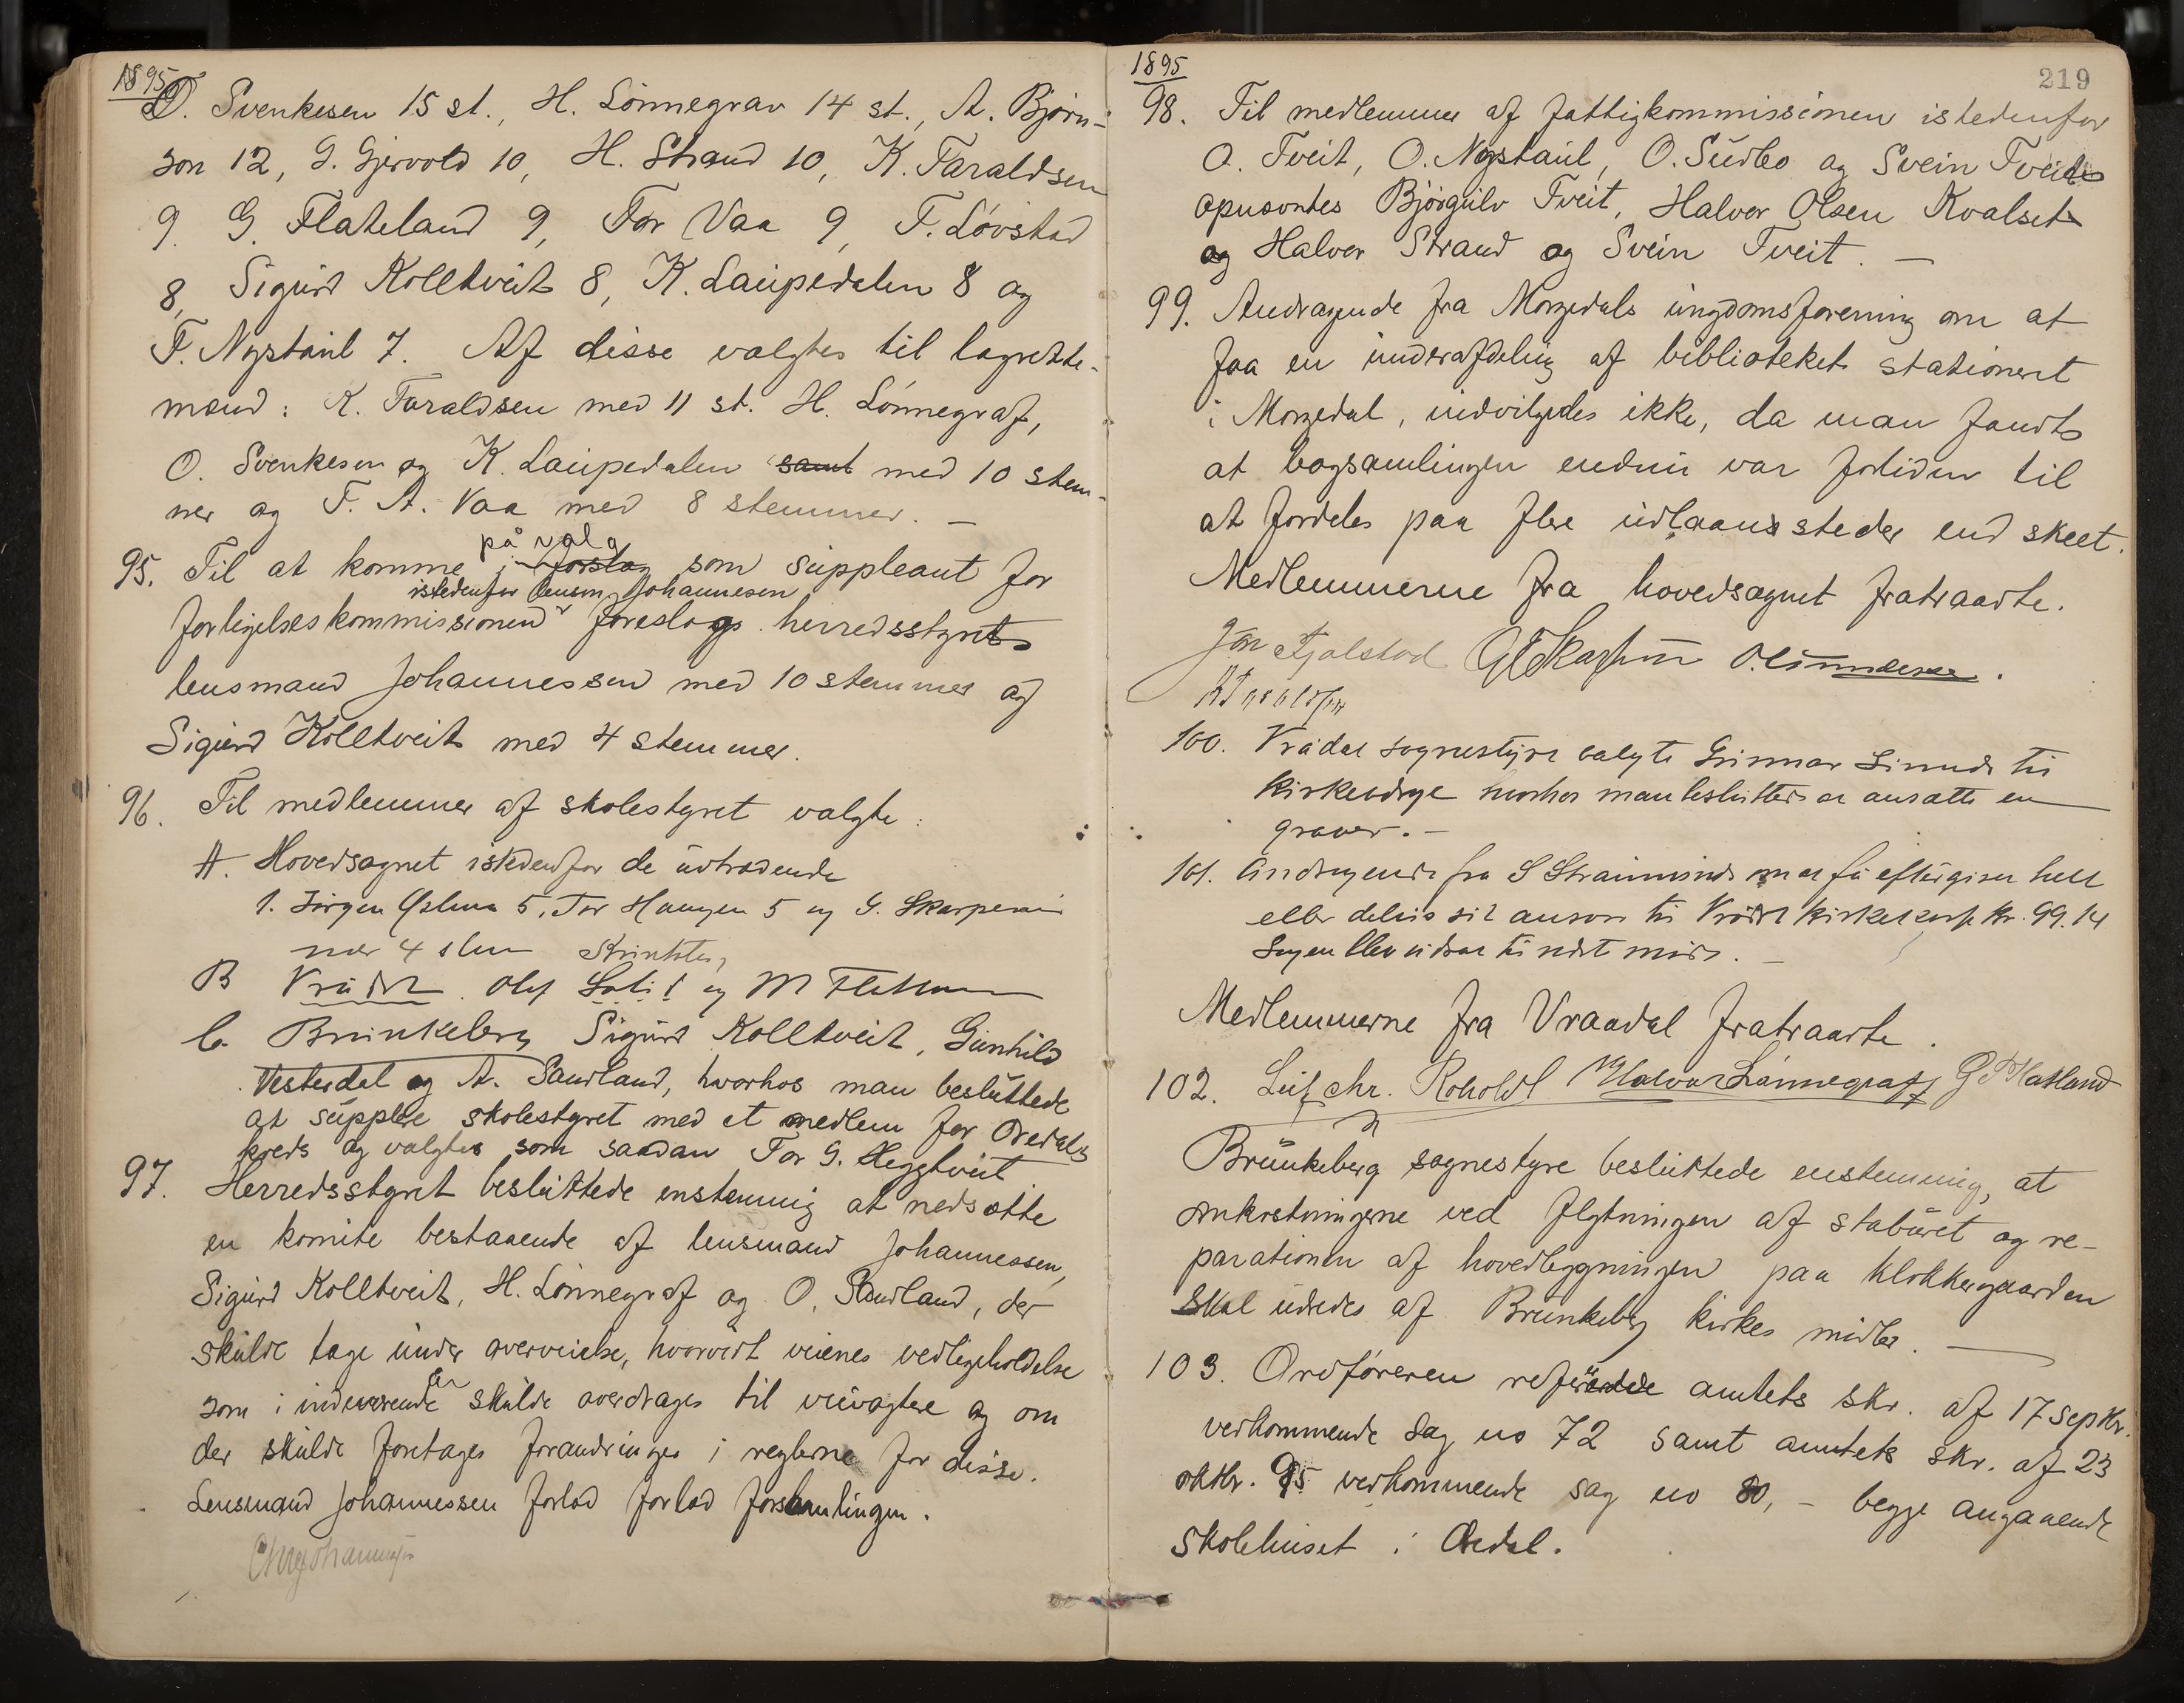 1895
O. Svenkesen 15 st., H. Lönnegrav 14 st., A. Björn-
son 12, G. Gjervold 10, H. Strand 10, K. Taraldsen
9. G. Flateland 9, Tor Vaa 9, T. Lövstad
8, Sigurd Kolltveit 8, K. Laupedalen 8 og
T. Nystaul 7. Af disse valgtes til lagrette-
mænd: K. Taraldsen med 11 st. H. Lönnegraf,
O. Svenkesen og K. Laupedalen samt med 10 stem-
mer og T. A. Vaa med 8 stemmer. —
på valg
95. Til at komme i forslag som suppleant for
istedenfor lensm. Johannesen
forligelseskommissionen foreslogs herredsstyret
lensmand Johannessen med 10 stemmer og
Sigurd Kolltveit med 4 stemmer.
96. Til medlemmer af skolestyret valgte:
A. Hovedsognet istedenfor de udtrædende
1. Jörgen 5, Tor Haugen 5 og G.
4
B Vrådal. Olef og M
C. Brunkeberg Sigurd Kolltveit, Gunhild
Vesterdal og A. Sandland, hvorhos man besluttede
at supplere skolestyret med et medlem for Ordals
kreds og valgtes som saadan Tor G. Heggtveit
97. Herredsstyret besluttede enstemmig at nedsætte
en komite bestaaende af lensmand Johannessen,
Sigurd Kolltveit, H. Lönnegraf og O. Sandland, der
skulde tage under overveielse, hvorvidt veienes vedligeholdelse
aar
som i indeværende skulde overdrages til veivogtere og om
der skulde foretages forandringer i reglerne for disse.
Lensmand Johannessen forlod forlod forsamlingen.
Johannessen
1895
219
98. Til medlemmer af fattigkommissionen istedenfor
O. Tveit, O. Nystaul, O. Sudbö og Svein Tveit
opnævntes Björgulv Tveit, Halvor Olsen Kvalset
og Halvor Strand og Svein Tveit. —
99. Andragende fra Morgedals ungdomsforening om at
faa en underafdeling af biblioteket stationeret
i Morgedal, indvilgedes ikke, da man fandt
at bogsamlingen endnu var forliden til
at fordeles paa flere udlaanssteder end skeet.
Medlemmerne fra hovedsognet fratraadte.
Jon Fjalestad
100. Vrådal sognestyre valgte Gunnar til
kirkeværge hvorhos man besluttede at ansætte en
graver. —
101. Andragende fra S Straumsnes om at få eftergivet helt
eller delvis sit ansvar til Vrådal kirkekasse kr. 99.14
Sagen blev udsat til næste möde. —
Medlemmerne fra Vraadal fratraadte.
102. Leif Chr. Roholdt Halvor Lönnegraff G T Flatland
Brunkeberg sognestyre besluttede enstemmig, at
omkostningerne ved flytningen af staburet og re-
parationen af hovedbygningen paa klokkergaarden
skal udredes af Brunkeberg kirkes midler. —
103. Ordföreren refererede amtets skr. af 17 septbr.
vedkommende sag no 72 samt amtets skr. af 23
oktbr. 95 vedkommende sag no 80, – begge angaaende
skolehuset i Ordal.